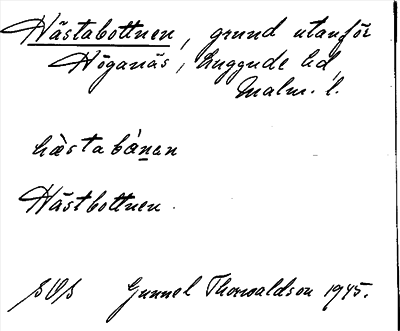 Hästabottnen, grund utanför
Höganäs, Luggude hd,
Malm. l.
hàstabánen
Hästbottnen.
SOS Gunnel Thorwaldson 1945.